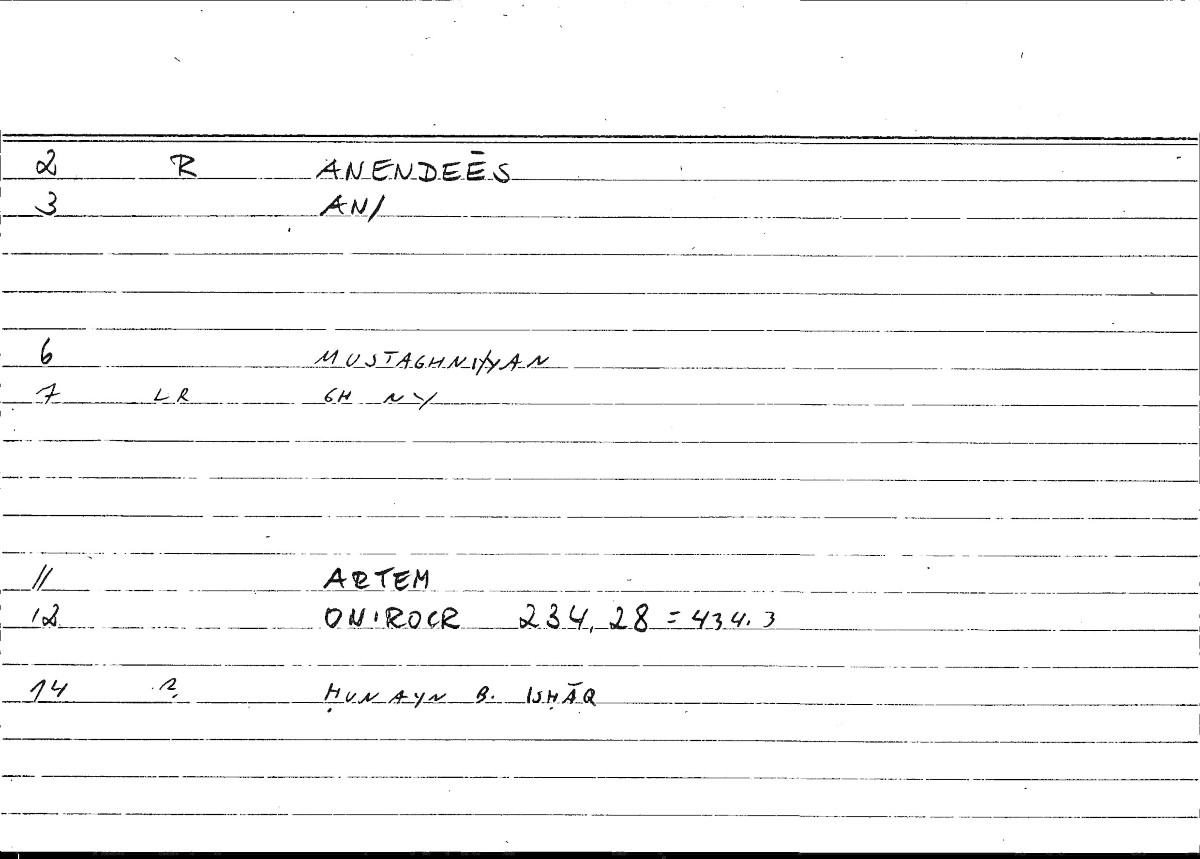 2 R ANENDEĒS
3 AN/
6 MUSTAGHNIYYAN
7 LR GH NY
11 ARTEM
12 ONIROCR 234, 28 = 434.3
14 ? ḤUNAYN B. ISḤĀQ